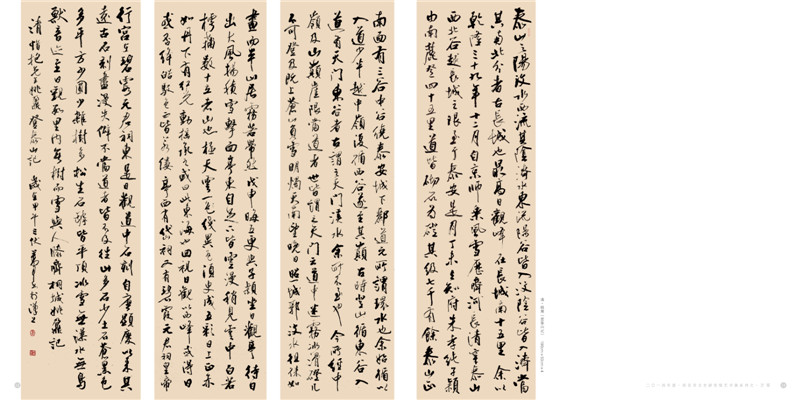 泰山之陽汶水西流其陰濟水東流陽谷皆入汶陰谷皆入濟當
其南北分者古長城也最高日觀峰在長城南十五里余以
乾隆三十九年十二月自京師乘風雪歷齊河長清穿泰山
西北谷越長城之限至于泰安是月丁未與知府朱孝純子潁
由南麓登四十五里道皆砌石為磴其級七千有餘泰山正
南面有三谷中谷繞泰安城下酈道元所謂環水也余始循以
入道少半越中嶺復循西谷遂至其巔古時登山循東谷入
道有天門東谷者古謂之天門溪水余所不至也今所經中
嶺及山巔崖限當道者世皆謂之天門云道中迷霧冰滑磴幾
不可登及既上蒼山負雪明燭天南望晚日照城郭汶水徂徠如
畫而半山居霧若帶然戊申晦五更與子潁坐日觀亭待日
出大風揚積雪擊面亭東自足下皆雲漫稍見雲中白若
樗蒱數十立者山也極天雲一線異色須臾成五彩日上正赤
如丹下有紅光動搖承之或曰此東海也回視日觀以西峰或得日
或否絳皓駁色而皆若僂亭西有岱祠又有碧霞元君祠皇帝
行宮在碧霞元君祠東是日觀道中石刻自唐顯慶以來其
遠古石刻盡漫失僻不當道者皆不及往山多石少土石蒼黑色
多平方少圜少雜樹多松生石罅皆平頂冰雪無瀑水無鳥
獸音跡至日觀數里內無樹而雪與人膝齊桐城姚鼐記
清惜抱先生姚鼐登泰山記 歲在甲午